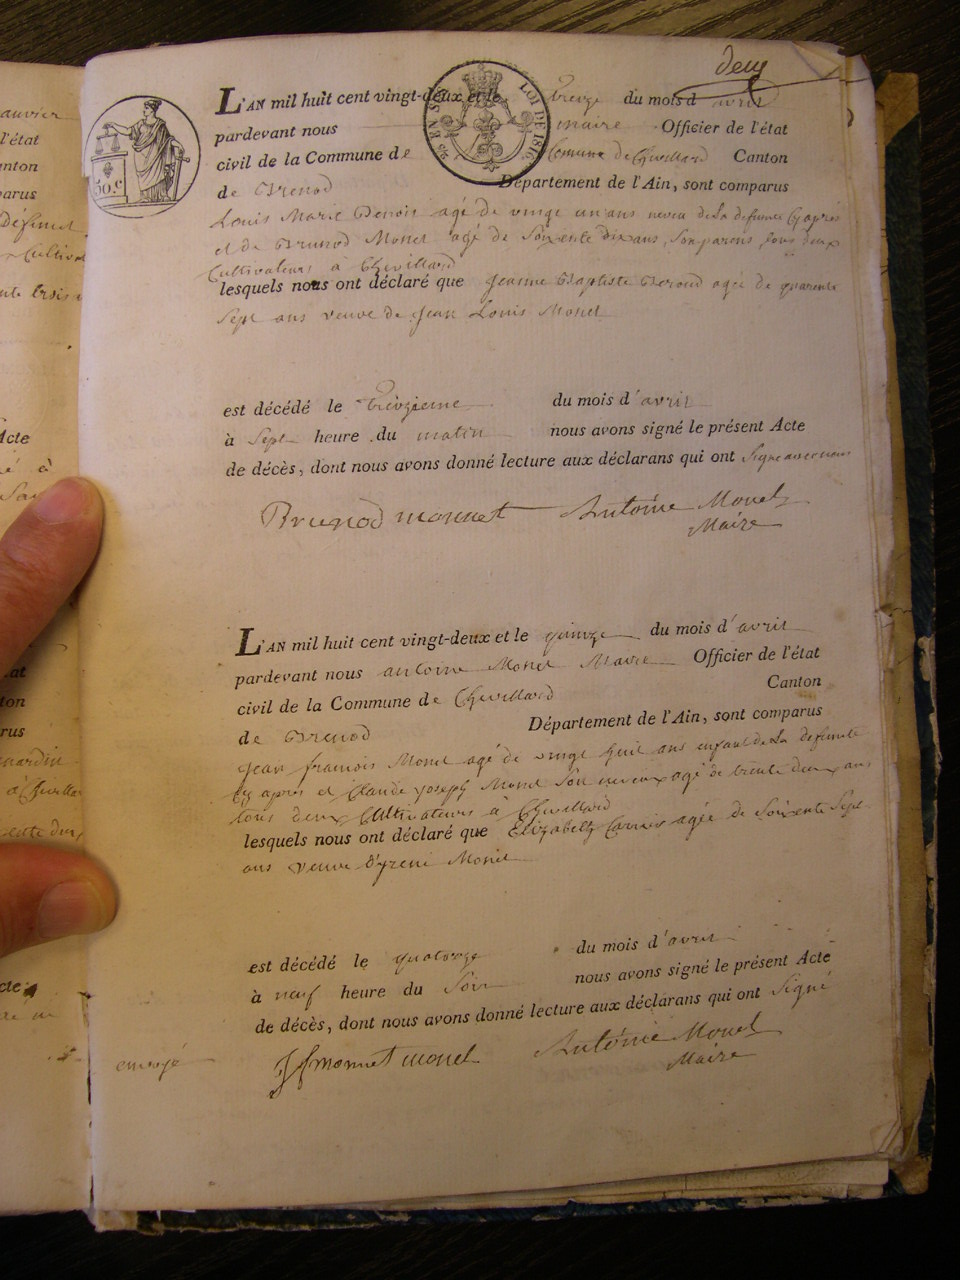 deux
L'AN mil huit cent vingt-deux et le treize du mois d avril
pardevant nous maire Officier de l'état
civil de la Commune de Comune de Chevillard Canton
de Brenod Département de l'Ain, sont comparus
Louis Marie Benoit agé de vingt un ans neveu de La defunte Cy après
et de Brunod Monet agé de Soixente dix ans, Son parens tous deux
Cultivateurs à Chevillard
lesquels nous ont déclaré que Jeanne Baptiste agé de quarente
Sept ans veuve de Jean Louis Monet
est décédé le treizieme du mois d'avril
à Sept heure du matin nous avons signé le présent Acte
de décès, dont nous avons donné lecture aux déclarans qui ont Signé avec nous
Brunod monnet Antoine Monet
Maire
L'AN mil huit cent vingt-deux et le quinze du mois d'avril
pardevant nous antoine Monet Maire Officier de l'état
civil de la Commune de Chevillard Canton
de Brenod Département de l'Ain, sont comparus
Jean francois Monet agé de vingt huit ans enfant de La defunte
Cy apres et Claude Joseph Monet Son neveux agé de trente deux ans
tous deux Cultivateurs à Chevillard
lesquels nous ont déclaré que Elizabeth agée de Soixente Sept
ans veuve Monet
est décédé le quatorze du mois d'avril
à neuf heure du Soir nous avons signé le présent Acte
de décès, dont nous avons donné lecture aux déclarans qui ont Signé
Jf monnet monet Antoine Monet
Maire
envoyé
50.c
25 EN SUS
LOI DE 1816